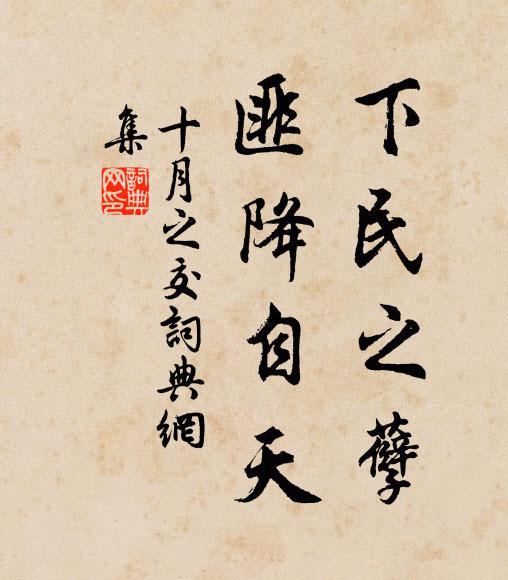 下民之孽
匪降自天
十月之交詞典網
集
詞典
网印